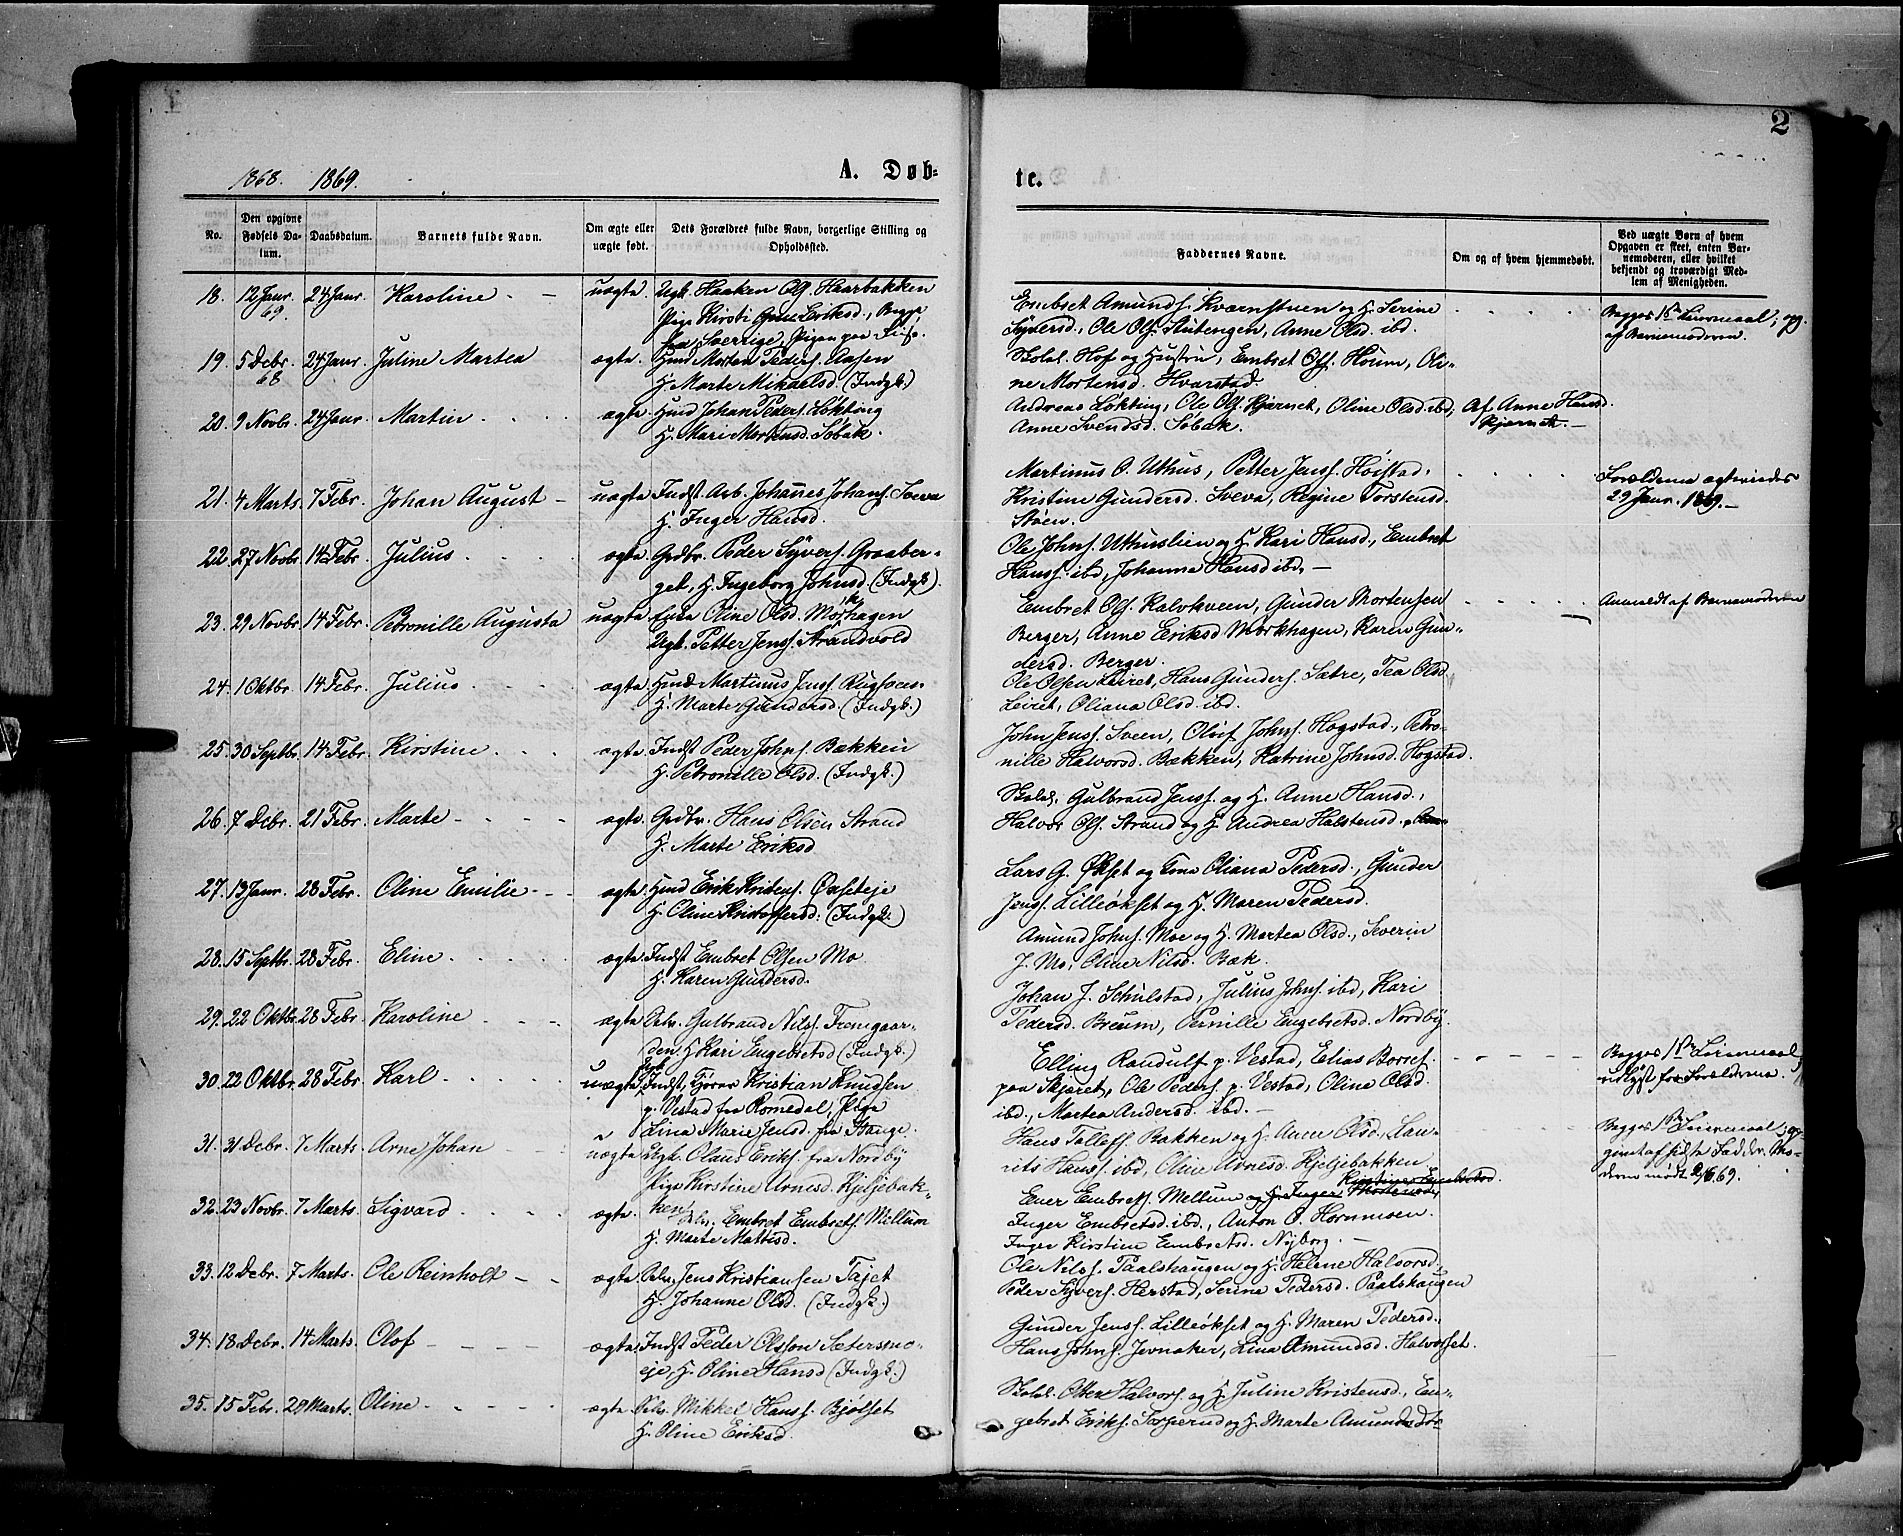 2
1868. 1869. A. Døb- te.
No.
Den opgivne Fødsels Datum.
Daabsdatum.
Barnets fulde Navn.
Om ægte eller uægte født.
Dets Forældres fulde Navn, borgerlige Stilling og Opholdssted.
Faddernes Navne.
Om og af hvem hjemmedøbt.
Ved uægte Børn af hvem Opgaven er skeet, enten Barnemoderen, eller hvilket bekjendt og troværdigt Medlem af Menigheden.
18. 12 Janr. 69. 24 Janr. Karoline uægte. Ugk. Haaken Ols. Haarbakken
Pige Kirsti Eriksd., Begge
fra Sverige, Pigen paa
Embret Amunds. Kværnstuen og H. Serine
Syversd., Ole Ols. Stutengen, Anne Olsd. ibd.
Begges 1ste Leiermaal, opg.
af Barnemoderen.
19. 5 Debr. 68 24 Janr. Juline Martea ægte. Hmd Morten Peders. Aasen
H. Marte Mikaelsd. (Indgk.)
Skolel. Hof og Hustru, Embret Ols. Houm, Oli-
ne Mortensd. Hvarstad.
20. 9 Novbr. 24 Janr. Martin ægte Hmd Johan Peders. Løkting
H. Mari Mortensd. Søbak.
Andreas Løkting, Ole Ols. Kjernet, Oline Olsd. ibd,
Anne Svendsd. Søbak.
Af Anne Hansd.
Kjernet.
21. 4 Marts. 7 Febr. Johan August uægte Indst. Arb. Johanes Johans. Sveva
H. Inger Hansd.
Martinus O. Uthus, Petter Jenss. Høistad,
Kristine Gundersd. Sveva, Regine Torstensd.
Støen.
Forældrene ægteviedes
29 Janr. 1869.
22. 27 Novbr 14 Febr. Julius ægte. Grdbr. Peder Syvers. Graaber-
get, H. Ingeborg Johnsd. (Indgk).
Ole Johns. Uthuslien og H Kari Hansd., Embret
Hanss. ibd, Johanna Hansd ibd,
23. 29 Novbr 14 Febr. Petronille Augusta uægte Oline Olsd. Mørkhagen
Ugk. Petter Jenss. Strandvold
Embret Ols. Kalvkveen, Gunder Mortensen
Berger, Anne Eriksd Mørkhagen, Karen Gun-
dersd. Berger.
Anmeldt af Barnemoderen
24. 1 Oktbr. 14 Febr. Julius ægte Hmd Martinus Jenss. Rugsveen
H. Marte Gundersd. (Indgk.)
Ole Olsen Leiret, Hans Gunders. Sætre, Tea Olsd.
Leiret, Oliana Olsd. ibd.
25. 30 Septbr. 14 Febr. Kirstine ægte. Indst Peder Johns. Bækken
H. Petronille Olsd. (Indgk.)
John Jenss. Sveen, Oluf Johns. Hogstad, Petro-
nille Halvorsd. Bækken, Katrine Johnsd. Hogstad.
26. 7 Debr. 21 Febr. Marte ægte Grdbr. Hans Olsen Strand
H. Marte Eriksd
Skolel. Gulbrand Jenss. og H. Anne Hansd.,
Halvor Ols. Strand og H Andrea Halstensd.
27. 13 Janr. 28 Febr. Oline Emilie ægte Hmd Erik Kristens. Øxseteje
H. Oline Kristoffersd: (Indgk.)
Lars G. Økset og Kona Oliana Pedersd., Gunder
Jenss. Lilleøkset og H. Maren Pedersd.
28. 15 Septbr. 28 Febr. Eline ægte Indst Embret Olsen Mo
H. Karen Gundersd.
Amund Johns. Moe og H. Martea Olsd., Severin
J. Mo, Oline Nilsd. Bæk.
29. 22 Oktbr. 28 Febr. Karoline ægte Selv. Gulbrand Nilss. Fremgaar-
den. H Kari Engebretsd (Indgk.)
Johan J. Schulstad, Julius Johns. ibd, Kari
Pedersd. Breum, Pernille Engebretsd. Nordby.
30. 22 Oktbr. 28 Febr. Karl uægte Indst, Kristian Knudsen
p. Vestad fra Romedal, Pige
Lina Marie Jensd. fra Stange.
Elling Randulf p. Vestad, Elias
paa Skjæret, Ole Peders. p. Vestad, Oline Olsd.
ibd., Martea Andersd. ibd.
Begges 1ste Leiermaal,
udlagt fra Forældrene.
31. 31 Debr. 7 Marts. Arne Johan uægte Ugk. Olaus Eriks. fra Nordby
Pige Kirstine Arnesd. Kjeljebak-
ken
Hans Tollefs. Bakken og H. Anne Olsd., Lau-
rits Hanss. ibd, Oline Arnesd. Kjeljebakken
Begges 1ste Leiermaal, op-
givet af sidste Fadder. Mo-
deren mødt 69.
32. 23 Novbr. 7 Marts. Sigvard ægte. Selv. Embret Embrets. Mellum
H. Marte Mattisd.
Ener Embrets. Mellum og H. Inger Embretsd.
Inger Embretsd. ibd., Anton O. Hornmoen.
Inger Kirstine Embretsd. Nyborg.
33. 12 Debr. 7 Marts. Ole Reinholt ægte Selv. Jens Kristiansen Tajet
H. Johanne Olsd. (Indgk.)
Ole Nilss. Paalshaugen og H. Helene Halvorsd.,
Peder Syvers. Herstad, Serine Pedersd. Paalshaugen
34. 18 Debr. 14 Marts. Olof ægte. Indst Peder Olsson Sætersmo-
eje, H. Oline Hansd (Indgk.)
Gunder Jenss. Lilleøkset og H. Maren Pedersd.,
Hans Johns. Jevnaker, Lina Amundsd. Halvorset.
35. 15 Febr. 29 Marts. Oline ægte. Selv. Mikkel Hanss. Bjølset
H. Oline Eriksd.
Skolel. Otter Halvors. og H. Juline Kristensd., En-
gebret Eriks. og H. Marte Amundsdtr